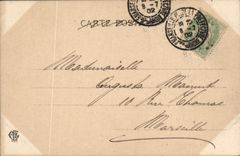 CARTE POSTALE
Mademoiselle
Augusta
10 Rue Thomas
Marseille